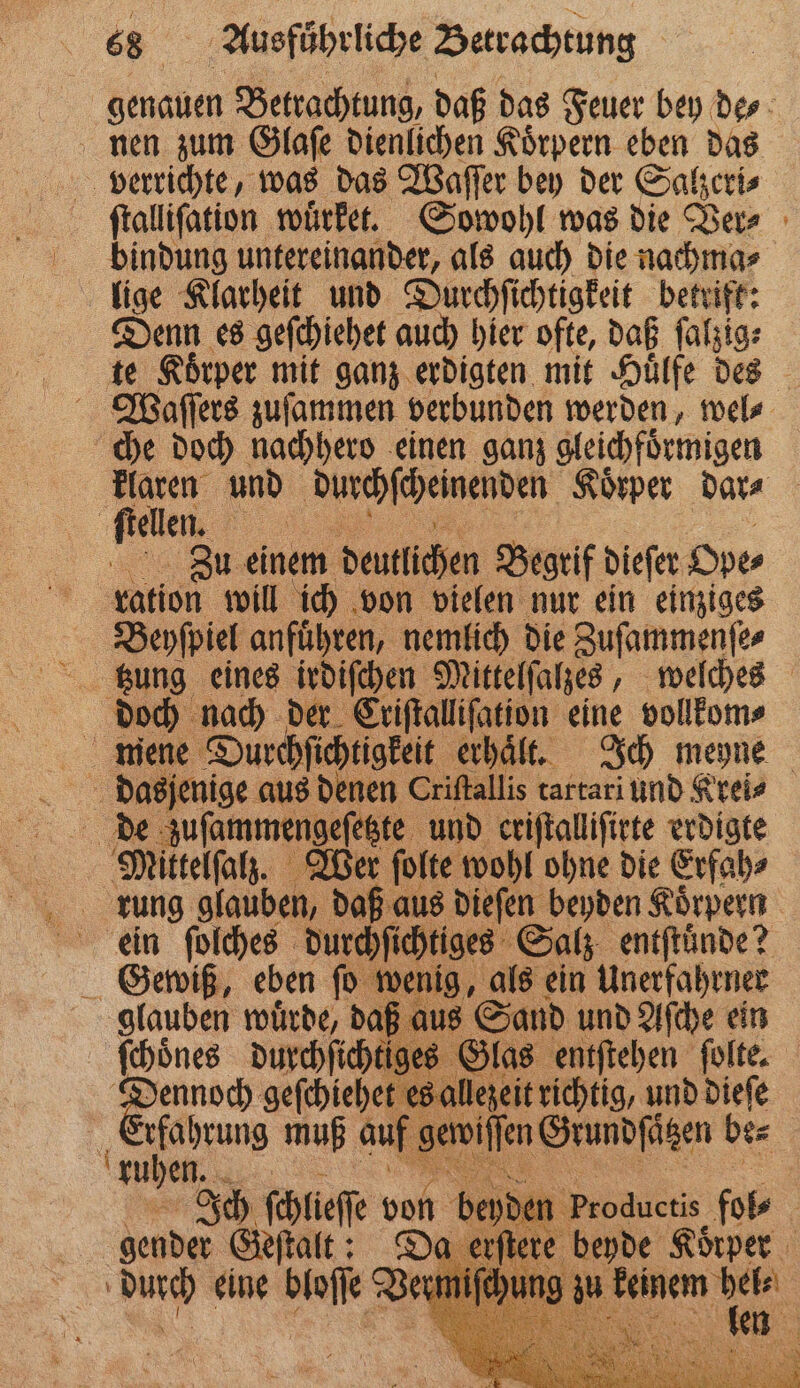 68 Ausfuͤhrliche Betrachtung
genauen Betrachtung, daß das Feuer bey de⸗
nen zum Glaſe dienlichen Koͤrpern eben das
verrichte, was das Waſſer bey der Salzcri⸗
ſtalliſation wuͤrket. Sowohl was die Ver⸗
bindung untereinander, als auch die nachma⸗
lige Klarheit und Durchſichtigkeit betrift:
Denn es geſchiehet auch hier ofte, daß ſalzig⸗
te Koͤrper mit ganz erdigten mit Huͤlfe des
Waſſers zuſammen verbunden werden, wel⸗
che doch nachhero einen ganz gleichfoͤrmigen
klaren und durchſcheinenden Koͤrper dar⸗
ſtellen.
Zu einem deutlichen Begrif dieſer Ope⸗
ration will ich von vielen nur ein einziges
Beyſpiel anfuͤhren, nemlich die Zuſammenſe⸗
tzung eines irdiſchen Mittelſalzes, welches
doch nach der Criſtalliſation eine vollkom⸗
mene Durchſichtigkeit erhaͤlt. Ich meyne
dasjenige aus denen Criſtallis tartari und Krei⸗
de zuſammengeſetzte und criſtalliſirte erdigte
Mittelſalz. Wer ſolte wohl ohne die Erfah⸗
rung glauben, daß aus dieſen beyden Koͤrpern
ein ſolches durchſichtiges Salz entſtuͤnde?
Gewiß, eben ſo wenig, als ein Unerfahrner
glauben wuͤrde, daß aus Sand und Aſche ein
ſchoͤnes durchſichtiges Glas entſtehen ſolte.
Dennoch geſchiehet es allezeit richtig, und dieſe
Erfahrung muß auf gewiſſen Grundſaͤtzen be⸗
ruhen.
Ich ſchlieſſe von beyden Productis fol⸗
gender Geſtalt: Da erſtere beyde Koͤrper
durch eine bloſſe Vermiſchung zu keinem hel⸗
len